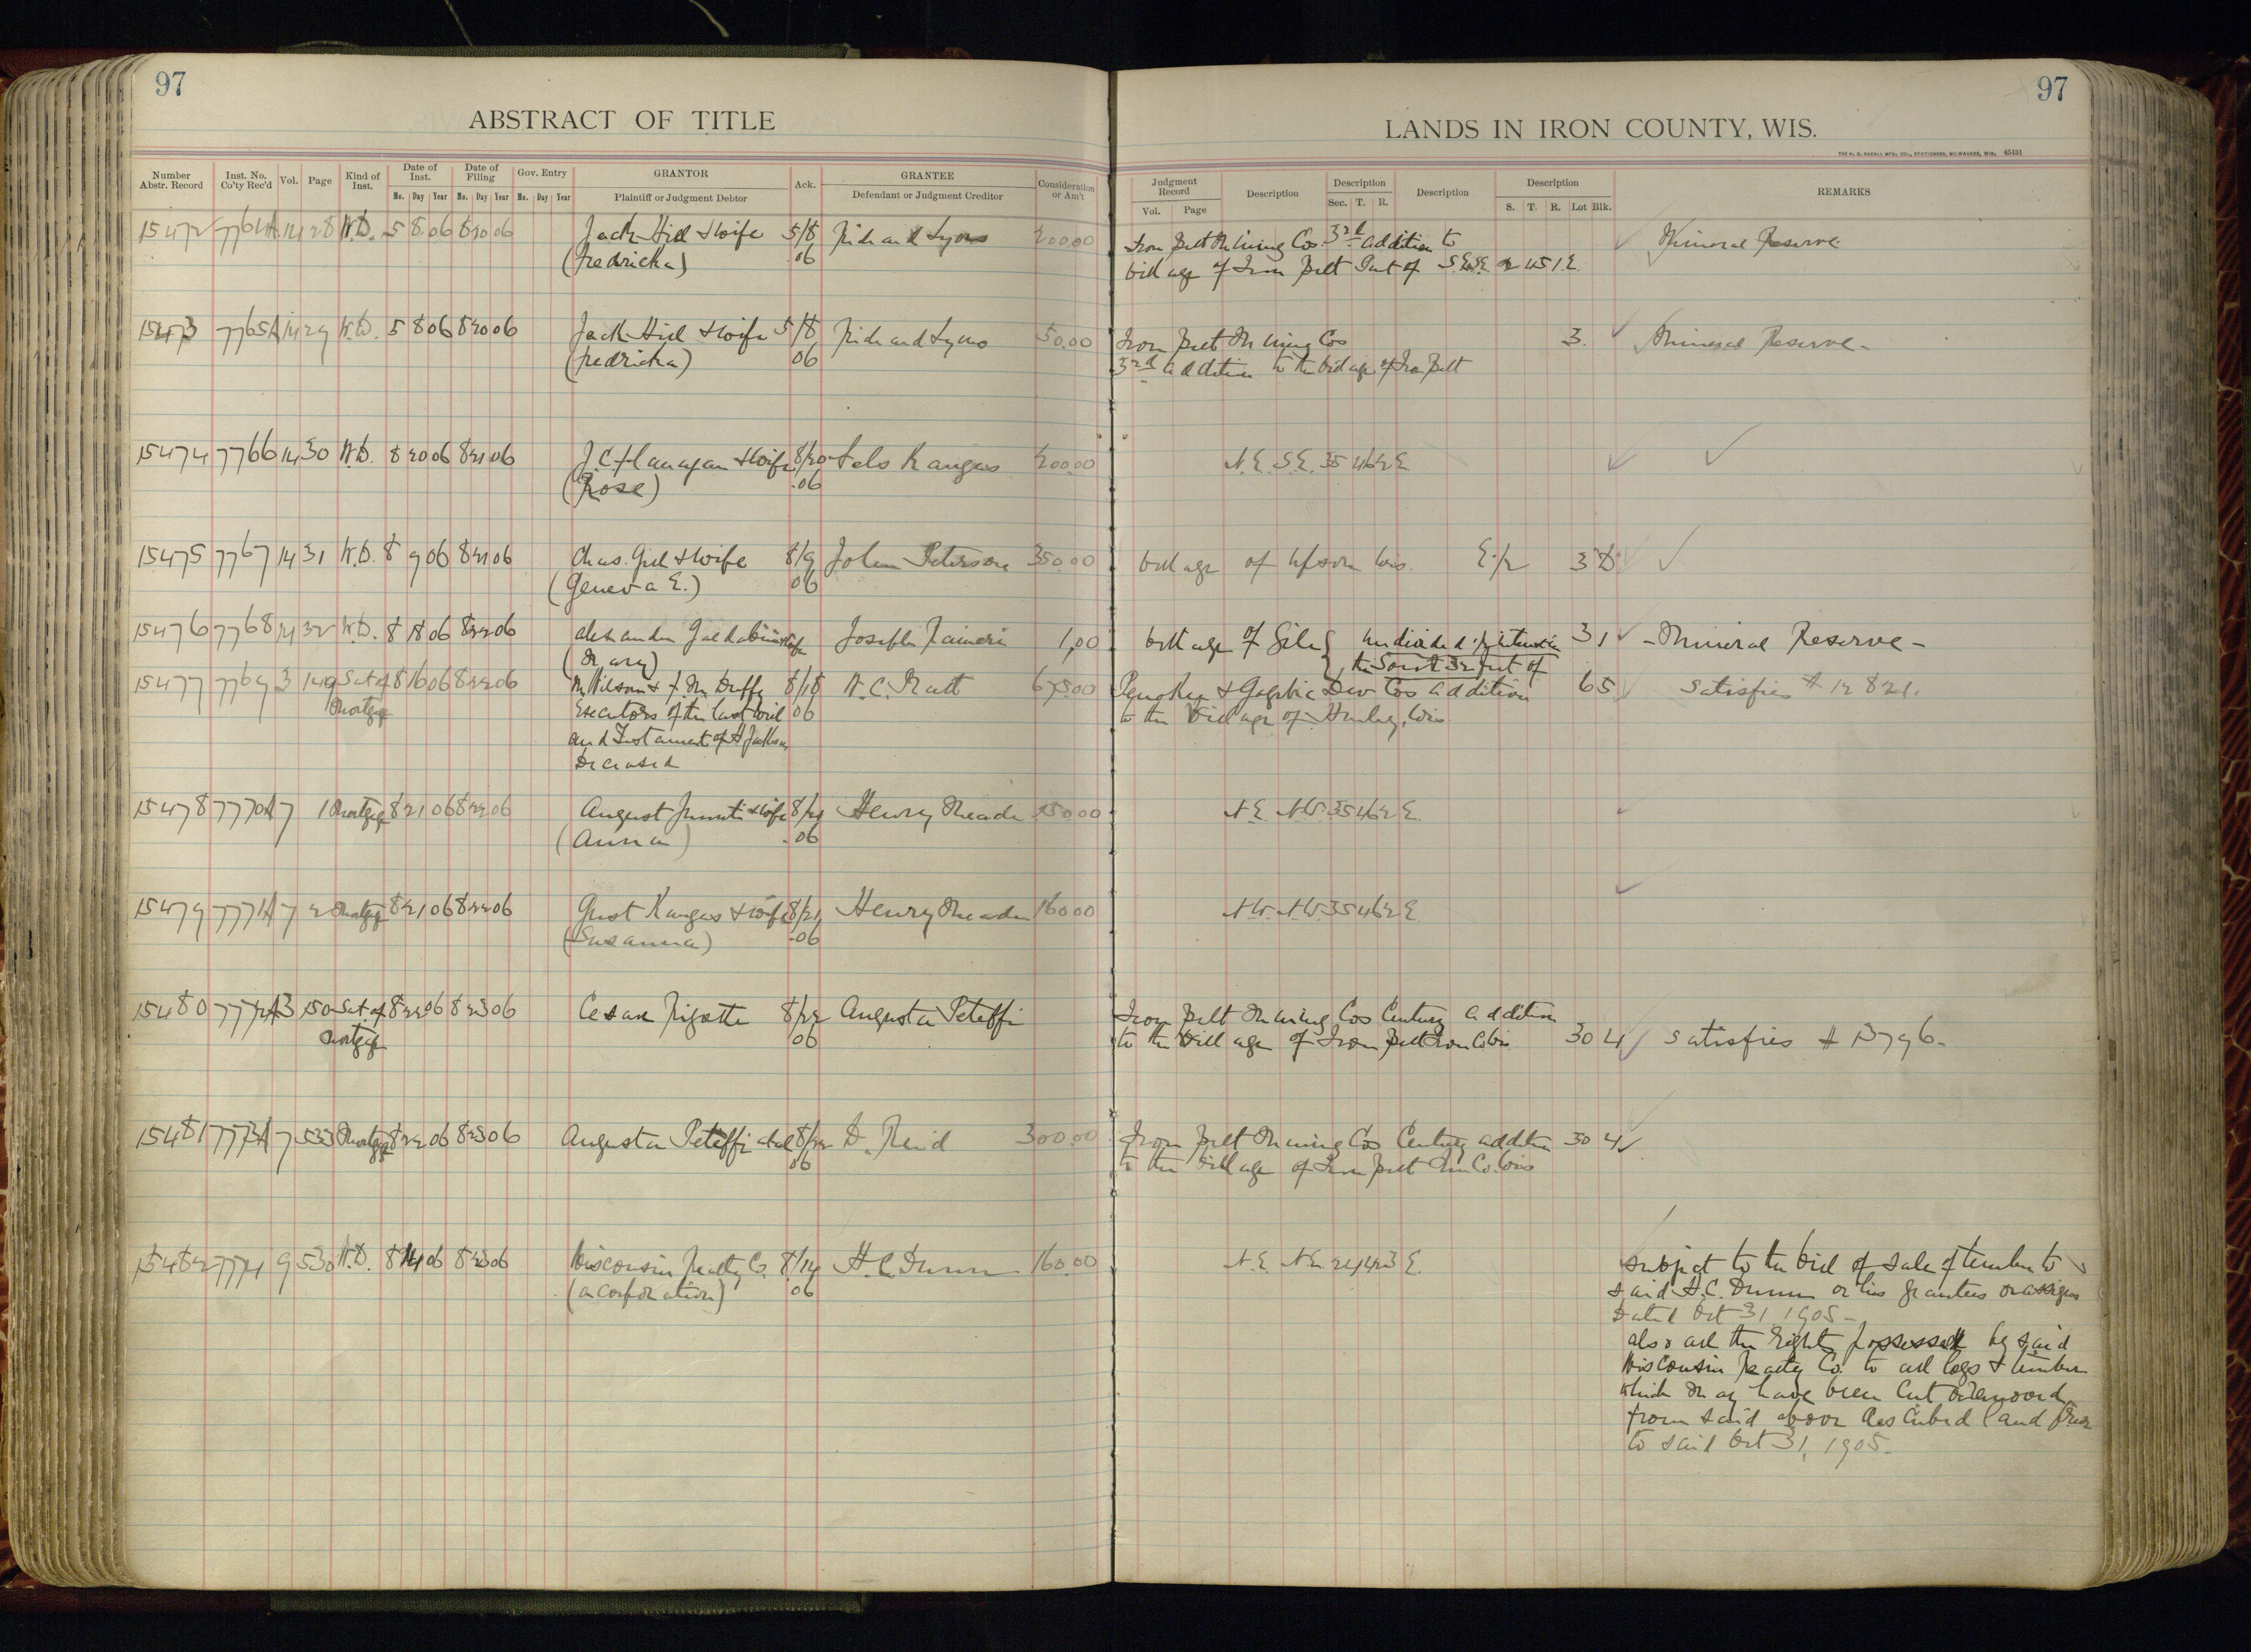 97
97
ABSTRACT OF TITLE
LANDS IN IRON COUNTY, WIS.
THE H. G. RAZALL MFG. CO., STATIONERS, MILWAUKEE, WIS. 45431
Number Abstr. Record Inst. No. Co'ty Rec'd Vol. Page Kind of Inst. Date of Inst. Mo. Day Year Date of Filing Mo. Day Year Gov. Entry Mo. Day Year GRANTOR Plaintiff or Judgment Debtor Ack. GRANTEE Defendant or Judgment Creditor Consideration or Am't
Judgment Record Vol. Page Description Description Sec. T. R. Description Description S. T. R. Lot Blk. REMARKS
15472 7764A 14 28 W.D. 5 8 06 8 20 06 Jack Hill & wife 5/8 Lyons 200.00 Iron Belt Mining Cos. 3rd addition to Mineral Reserve
(Fredricka) 06 village of Iron Belt Part of 2 45 1 E.
15473 7765A 14 29 W.D. 5 8 06 8 20 06 Jack Hill & wife 5/8 Lyons 50.00 Iron Belt Mining Cos 3. Mineral Reserve-
(Fredricka) 06 3rd addition to the village of Iron Belt
15474 7766 14 30 W.D. 8 20 06 8 21 06 J.C. Flanagan & wife 8/20 Kangas 200.00 N.E. S.E. 35 46 2 E
(Rose) 06
15475 7767 14 31 W.D. 8 9 06 8 21 06 Chas. Gill & wife 8/9 John Peterson 350.00 village of Upson Wis. E 1/2 3
(Geneva E.) 06
15476 7768 14 32 W.D. 8 18 06 8 22 06 Joseph Raineri 1.00 village of Gile undivided 1/2 interest in 3 1 - Mineral Reserve -
(Mary) the South 32 feet of
15477 7769 3 149 Sat. of 8 16 06 8 22 06 M. Wilson & J. M. Duffy 8/18 W.C. Pratt 675.00 Penokee & Gogebic Dev Cos addition 6 5 Satisfies # 12821.
Mortgage Executors of the last will 06 to the village of Hurley, Wis.
and Testament of
Deceased
15478 7770A 7 1 Mortgage 8 21 06 8 22 06 August & wife 8/21 Henry Meade 250.00 N.E. N.W. 35 46 2 E.
(Anna) 06
15479 7771A 7 2 Mortgage 8 21 06 8 22 06 Gust Kangas & wife 8/21 Henry Meade 160.00 N.W. N.W. 35 46 2 E
(Susanna) 06
15480 7772A 3 150 Sat. of 8 22 06 8 23 06 Cesar Rigotte 8/22 Augusta Peteffi Iron Belt Mining Cos Century addition
Mortgage 06 to the village of Iron Belt Iron Co. Wis. 30 4 Satisfies # 13796-
15481 7773A 7 533 Mortgage 8 22 06 8 23 06 Augusta Peteffi et al 8/22 D. Reid 300.00 Iron Belt Mining Cos Century addition 30 4
06 to the village of Iron Belt Iron Co. Wis
15482 7774 9 530 W.D. 8 14 06 8 23 06 Wisconsin Realty Co. 8/14 H.C. Dunn 160.00 N.E. N.E. 24 42 3 E. Subject to the bill of sale of timber to
(a corporation) 06 said H.C. Dunn or his grantees or assigns
Dated Oct 31, 1905-
also all the rights possessed by said
Wisconsin Realty Co. to all logs & timber
which may have been cut or removed
from said above described land prior
to said Oct 31, 1905-